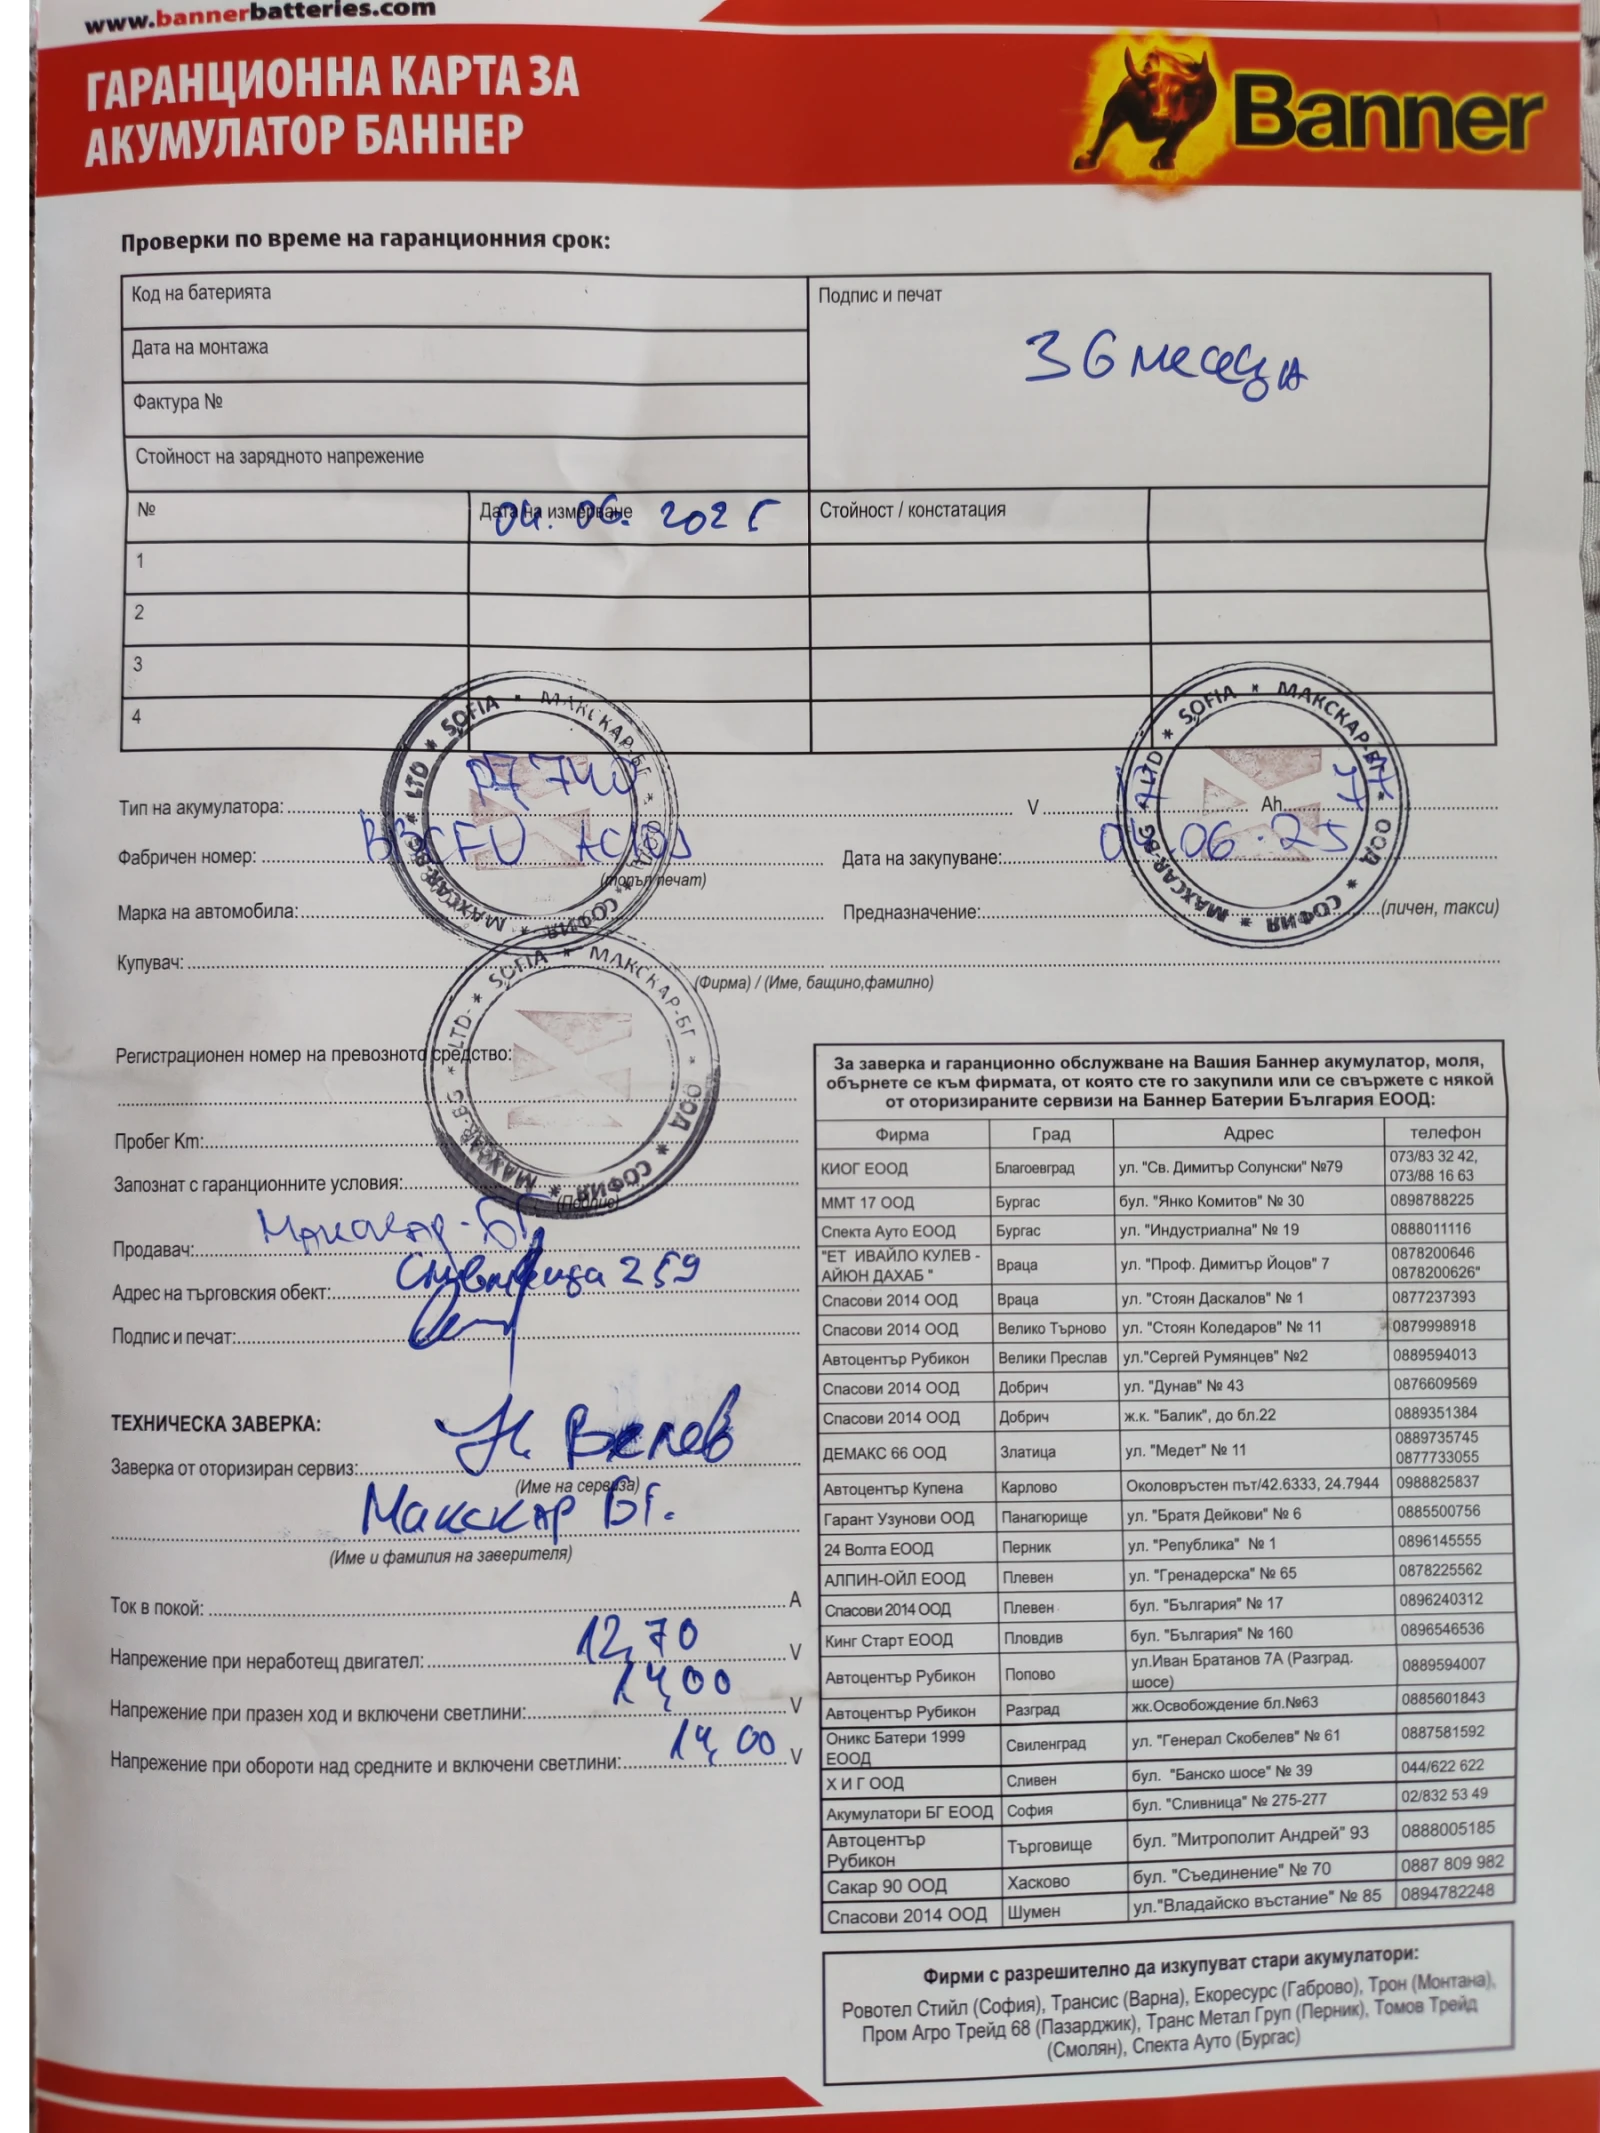 www.bannerbatteries.com
ГАРАНЦИОННА КАРТА ЗА
АКУМУЛАТОР БАННЕР
Banner
Проверки по време на гаранционния срок:
Код на батерията
Подпис и печат
36 месеца
Дата на монтажа
Фактура №
Стойност на зарядното напрежение
№ Дата на измерване 04.06.2025 Стойност / констатация
1
2
3
4
SOFIA * МАКСКАР-БГ * ООД * СОФИЯ * MAXCAR-BG * LTD *
SOFIA * МАКСКАР-БГ * ООД * СОФИЯ * MAXCAR-BG * LTD *
Тип на акумулатора: P7740 V Ah 77
Фабричен номер: Дата на закупуване: 06.25
(топъл печат)
Марка на автомобила: Предназначение: (личен, такси)
Купувач:
(Фирма) / (Име, бащино,фамилно)
SOFIA * МАКСКАР-БГ * ООД * СОФИЯ * MAXCAR-BG * LTD *
Регистрационен номер на превозното средство:
Пробег Km:
Запознат с гаранционните условия:
(Подпис)
Продавач: Макскар-БГ
Адрес на търговския обект: Сливница 259
Подпис и печат:
ТЕХНИЧЕСКА ЗАВЕРКА:
Заверка от оторизиран сервиз: Н. Велев
(Име на сервиза)
Макскар БГ.
(Име и фамилия на заверителя)
Ток в покой: A
Напрежение при неработещ двигател: 12,70 V
Напрежение при празен ход и включени светлини: 14,00 V
Напрежение при обороти над средните и включени светлини: 14,00 V
За заверка и гаранционно обслужване на Вашия Баннер акумулатор, моля,
обърнете се към фирмата, от която сте го закупили или се свържете с някой
от оторизираните сервизи на Баннер Батерии България ЕООД:
Фирма Град Адрес телефон
КИОГ ЕООД Благоевград ул. "Св. Димитър Солунски" №79 073/83 32 42,
073/88 16 63
ММТ 17 ООД Бургас бул. "Янко Комитов" № 30 0898788225
Спекта Ауто ЕООД Бургас ул. "Индустриална" № 19 0888011116
"ЕТ ИВАЙЛО КУЛЕВ - АЙЮН ДАХАБ " Враца ул. "Проф. Димитър Йоцов" 7 0878200646
0878200626"
Спасови 2014 ООД Враца ул. "Стоян Даскалов" № 1 0877237393
Спасови 2014 ООД Велико Търново ул. "Стоян Коледаров" № 11 0879998918
Автоцентър Рубикон Велики Преслав ул."Сергей Румянцев" №2 0889594013
Спасови 2014 ООД Добрич ул. "Дунав" № 43 0876609569
Спасови 2014 ООД Добрич ж.к. "Балик", до бл.22 0889351384
ДЕМАКС 66 ООД Златица ул. "Медет" № 11 0889735745
0877733055
Автоцентър Купена Карлово Околовръстен път/42.6333, 24.7944 0988825837
Гарант Узунови ООД Панагюрище ул. "Братя Дейкови" № 6 0885500756
24 Волта ЕООД Перник ул. "Република" № 1 0896145555
АЛПИН-ОЙЛ ЕООД Плевен ул. "Гренадерска" № 65 0878225562
Спасови 2014 ООД Плевен бул. "България" № 17 0896240312
Кинг Старт ЕООД Пловдив бул. "България" № 160 0896546536
Автоцентър Рубикон Попово ул.Иван Братанов 7А (Разград. шосе) 0889594007
Автоцентър Рубикон Разград жк.Освобождение бл.№63 0885601843
Оникс Батери 1999 ЕООД Свиленград ул. "Генерал Скобелев" № 61 0887581592
Х И Г ООД Сливен бул. "Банско шосе" № 39 044/622 622
Акумулатори БГ ЕООД София бул. "Сливница" № 275-277 02/832 53 49
Автоцентър Рубикон Търговище бул. "Митрополит Андрей" 93 0888005185
Сакар 90 ООД Хасково бул. "Съединение" № 70 0887 809 982
Спасови 2014 ООД Шумен ул."Владайско въстание" № 85 0894782248
Фирми с разрешително да изкупуват стари акумулатори:
Ровотел Стийл (София), Трансис (Варна), Екоресурс (Габрово), Трон (Монтана),
Пром Агро Трейд 68 (Пазарджик), Транс Метал Груп (Перник), Томов Трейд
(Смолян), Спекта Ауто (Бургас)